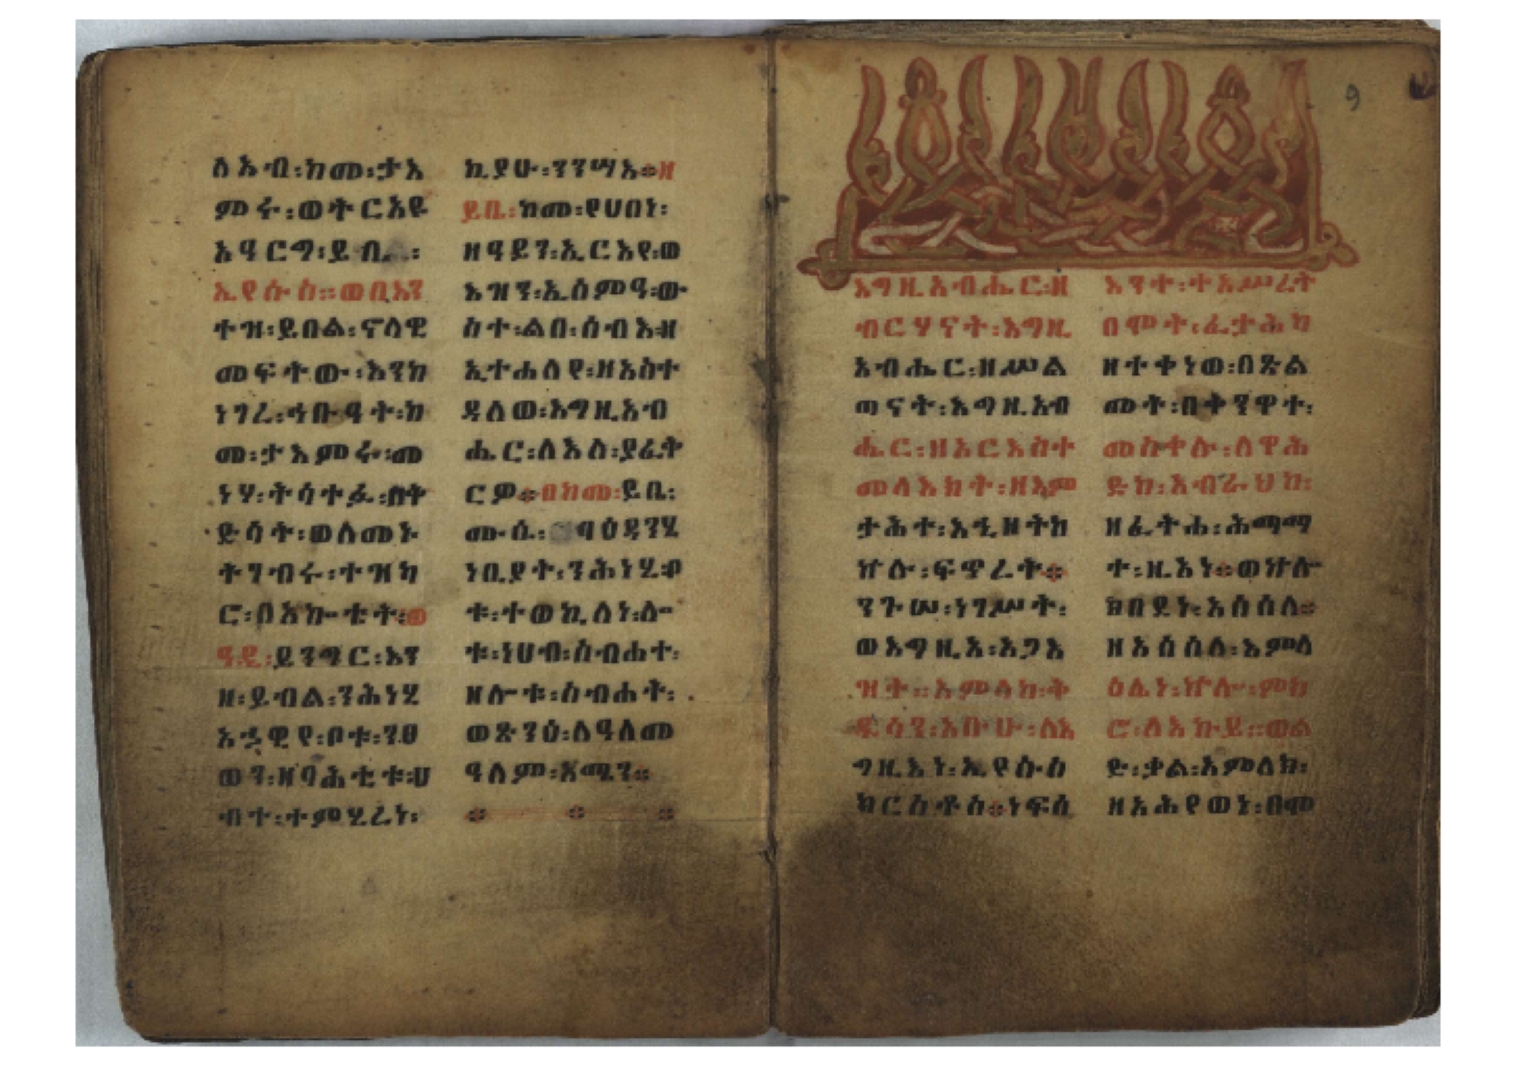 ለእብ፡ከመ፡ታአ
ምሩ፡ወትርአዩ
አዓርግ፡ይብ
ኢየሱስ።ወበእን
ተዝ፡ይበል፡ናሁዊ
መፍትው፡እንከ
ነገረ፡ኅቡዓት፡ከ
መ፡ታአምሩ፡መ
ነሃ፡ትሳተፉ፡በቅ
ድሳት፡ወለመኑ
ትገብሩ፡ተዝካ
ሮ፡በአኰቴት፡ወ
ዓዲ፡ይንግር፡እን
ዘ፡ይብል፡ንሕነሂ
አኃዊየ፡ቦቱ፡ንፀ
ወን፡ዘባሕቲቱ፡ሀ
ብተ፡ተምሂረነ፡
ኪያሁ፡ንንሣእ፨ዘ
ይቤ፡ከመ፡የሀበነ፡
ዘዓይን፡ኢርእየ፡ወ
እዝን፡ኢሰምዓ፡ው
ስተ፡ልበ፡ሰብእ፡ዘ
ኢተሐለየ፡ዘአስተ
ዳለወ፡እግዚአብ
ሔር፡ለእለ፡ያፈቅ
ርዎ፨በከመ፡ይቤ፡
ሙሴ፡ ባዕዳንሂ
ነቢያት፡ንሕነሂ፡ቦ
ቱ፡ተወኪለነ፡ሎ
ቱ፡ነሀብ፡ስብሐተ፡
ዘሎቱ፡ስብሐት፡
ወጽንዕ፡ለዓለመ
ዓለም፡አሜን።
9
እግዚአብሔር፡ዘ
ብርሃናት፡እግዚ
አብሔር፡ዘሥል
ጣናት፡እግዚአብ
ሔር፡ዘአርእስተ
መላእክት፡ዘእም
ታሕተ፡እዲዘትከ
ኵሉ፡ፍጥረት፨
ንጉሠ፡ነገሥት፡
ወእግዚአ፡አጋእ
ዝት።አምላክ፡ቅ
ዱሳን፡አቡሁ፡ለእ
ግዚእነ፡ኢየሱስ
ክርስቶስ፨ነፍሰ
እንተ፡ተአሥረት
በሞት፡ፈታሕካ
ዘተቀነወ፡በጽል
መት፡በቅንዋተ፡
መስቀሉ፡ለዋሕ
ድከ፡አብራህከ፡
ዘፈትሐ፡ሕማማ
ተ፡ዚአነ፨ወኵሎ
ክበደነ፡አሰሰለ።
ዘአሰሰለ፡እምላ
ዕሌነ፡ኵሎ፡ምክ
ሮ፡ለእኩይ።ወል
ድ፡ቃል፡አምላክ፡
ዘአሕየወነ፡በሞ